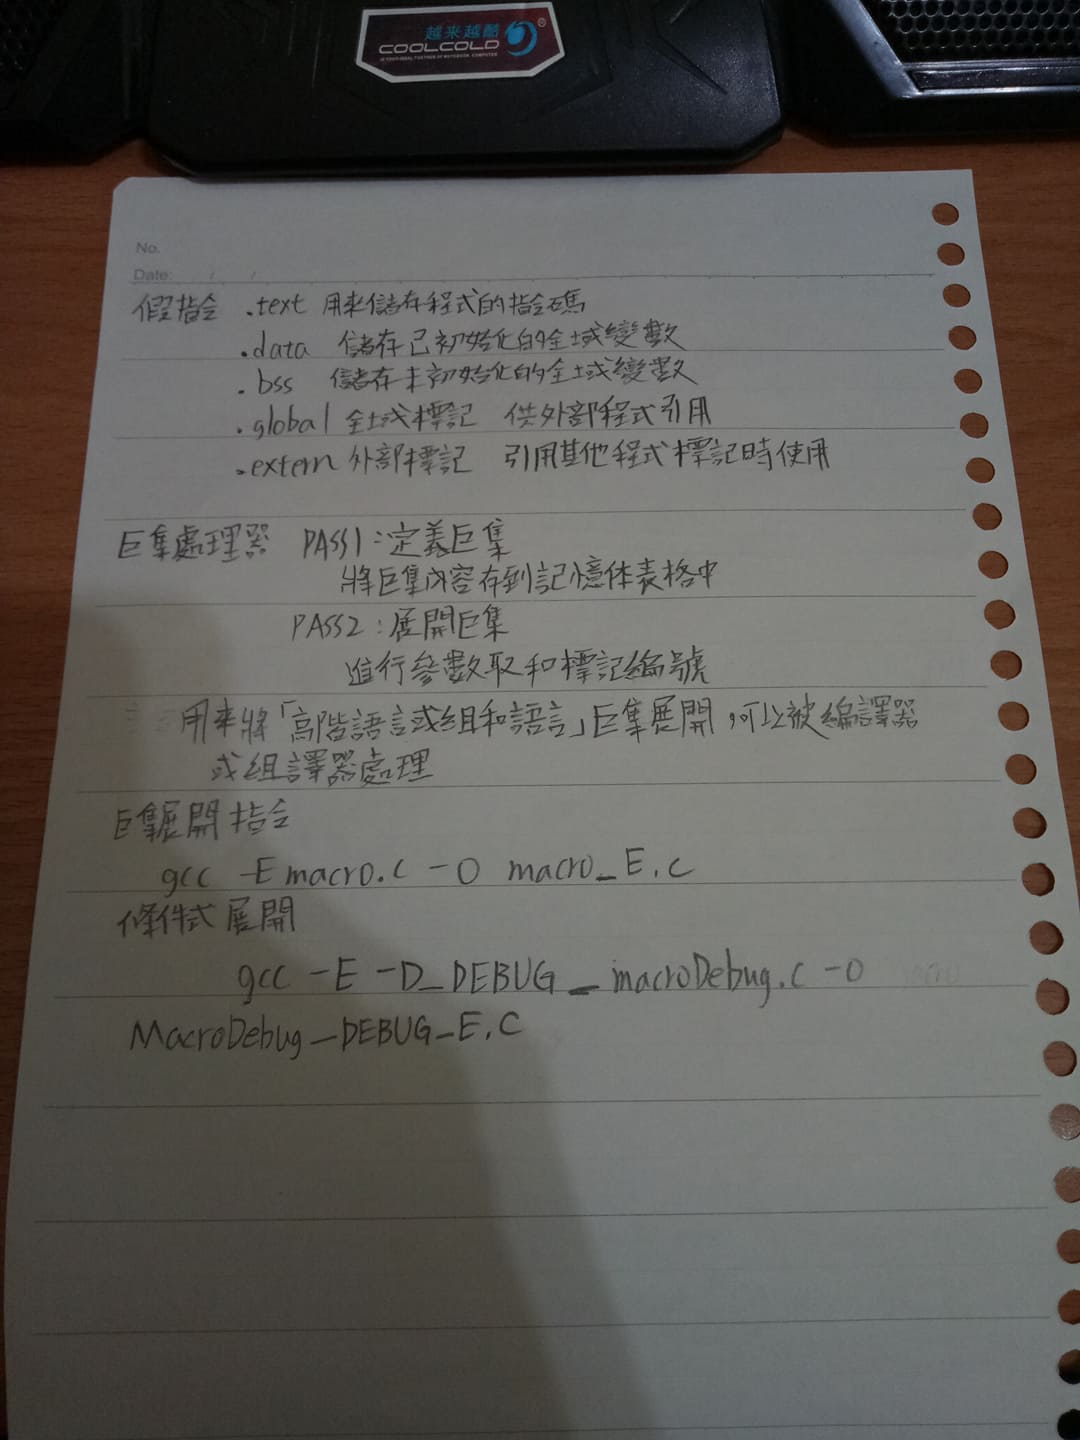 越来越酷
COOLCOLD
No.
Date: / /
假指令 .text 用來儲存程式的指令碼
.data 儲存已初始化的全域變數
.bss 儲存未初始化的全域變數
.global 全域標記 供外部程式引用
.extern 外部標記 引用其他程式標記時使用
巨集處理器 PASS1:定義巨集
將巨集內容存到記憶体表格中
PASS2:展開巨集
進行參數取和標記編號
用來將「高階語言或組和語言」巨集展開,可以被編譯器
或組譯器處理
巨集展開指令
gcc -E macro.c -O macro_E.c
條件式展開
gcc -E -D_DEBUG_ macroDebug.c -O
MacroDebug_DEBUG_E.C